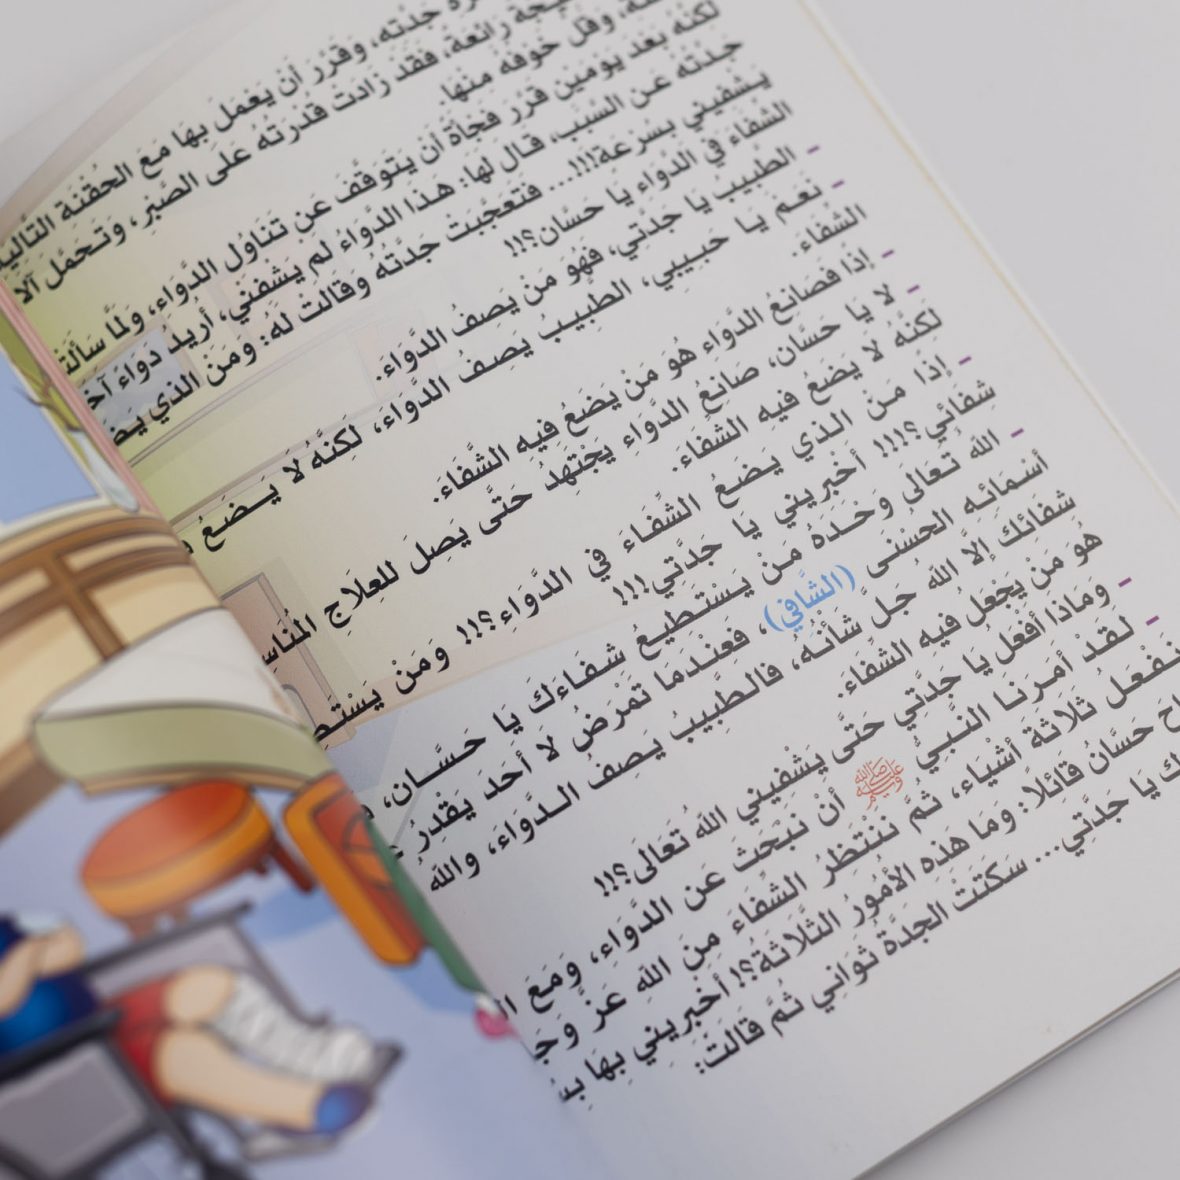 جَدَّتِه، وَقَرَّرَ أَنْ يَعْمَلَ بِهَا مَعَ الحُقْنَة التَّالِيَة
رَائِعَة، فَقَد زَادَت قُدْرَتُهُ عَلَى الصَّبْر، وَتَحَمُّل
وَقَلَّ خَوْفُهُ مِنْهَا.
لَكِنَّهُ بَعْدَ يَوْمَيْن قَرَّرَ فَجْأَةً أَنْ يَتَوَقَّفَ عَن تَنَاوُلِ الدَّوَاء، وَلَمَّا سَأَلَتْهُ
جَدَّتُه عَنِ السَّبَبِ، قَالَ لَهَا: هَذَا الدَّوَاءُ لَمْ يَشْفِنِي، أُرِيدُ دَوَاءً
يَشْفِينِي بِسُرْعَة!!!... فَتَعَجَّبَت جَدَّتُهُ وَقَالَتْ لَهُ: وَمَنْ الذي
الشِّفَاءَ في الدَّوَاء يَا حَسَّان؟!!
- الطَّبِيبُ يَا جَدَّتِي، فَهُوَ مَنْ يَصِفُ الدَّوَاءَ.
- نَعَم يَا حَبِيبِي، الطَّبِيبُ يَصِفُ الدَّوَاءَ، لَكِنَّهُ لَا يَضَعُ
الشِّفَاءَ.
- إِذًا فَصَانِعُ الدَّوَاءِ هُوَ مَنْ يَضَعُ فِيهِ الشِّفَاءَ.
- لا يَا حَسَّان، صَانِعُ الدَّوَاءِ يَجْتَهِدُ حَتَّى يَصِلَ لِلعِلَاجِ
لَكِنَّهُ لَا يَضَعُ فِيه الشِّفَاءَ.
- إِذًا مَنْ الذِي يَضَعُ الشِّفَاء فِي الدَّوَاءِ؟!! وَمَنْ
شِفَائِي؟!!! أَخْبِرِينِي يَا جَدَّتِي!!!
- اللهُ تَعَالَى وَحْدَهُ مَنْ يَسْتَطِيعُ شِفَاءَكَ يَا حَسَّان،
أَسْمَائِه الحُسْنَى (الشَّافِي)، فَعِنْدَمَا تَمْرَضُ لا أَحَدَ يَقْدِرُ
شِفَائَكَ إِلَّا اللهُ جَلَّ شَأْنُهُ، فَالطَّبِيبُ يَصِفُ الدَّوَاءَ، وَاللهُ
هُوَ مَنْ يَجْعَلُ فِيهِ الشِّفَاءَ.
- وَمَاذَا أَفْعَلُ يَا جَدَّتِي حَتَّى يَشْفِينِي اللهُ تَعَالَى؟!!
- لَقَدْ أَمَرَنَا النَّبِيُّ ﷺ أَنْ نَبْحَثَ عَن الدَّوَاءِ، وَمَعَ
نَفْعَلُ ثَلَاثَةَ أَشْيَاء، ثُمَّ نَنْتَظِرُ الشِّفَاءَ مِنَ اللهِ عَزَّ
حَسَّانُ قَائِلًا: وَمَا هَذِه الأُمُورُ الثَّلَاثَة؟! أَخْبِرِينِي بِهَا
يَا جَدَّتِي... سَكَتَتْ الجَدَّةُ ثَوَانِي ثُمَّ قَالَتْ: